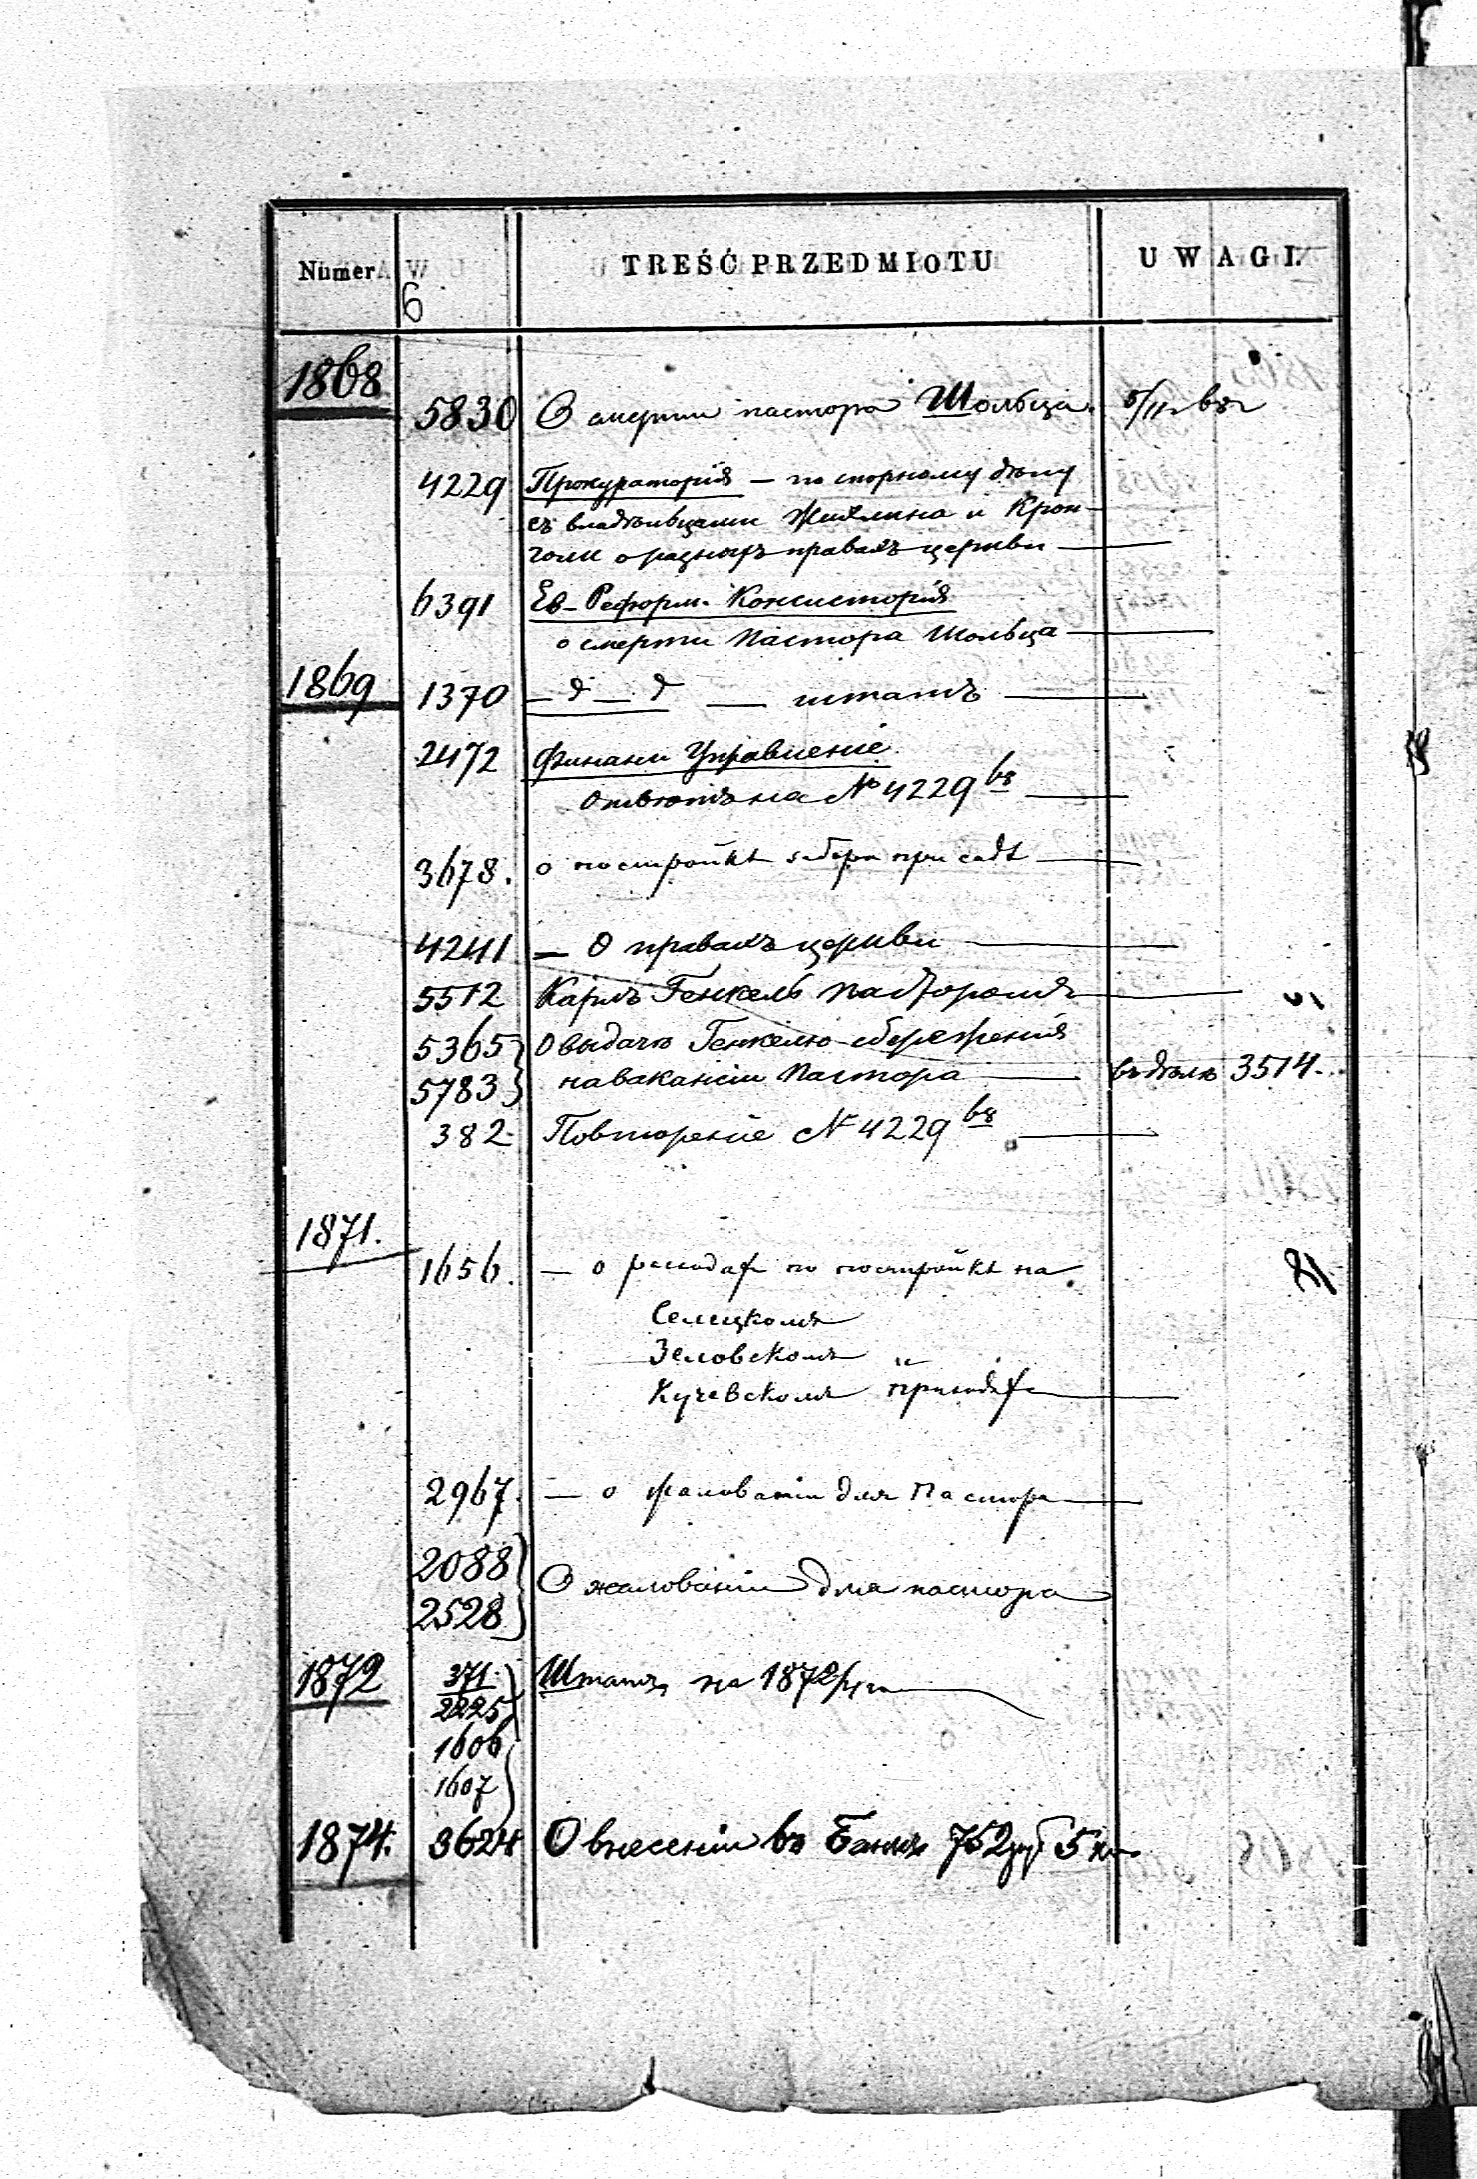 Numer TREŚĆ PRZEDMIOTU UWAGI.
6
1868
5830 О смерти пастора Шольца. 5/11 68 г
4229 Прокураторія — по спорному дѣлу
съ владѣльцами Жихлина и Крон-
о разныхъ правахъ церкви —
6391 Ев-Реформ. Консисторія
о смерти Пастора Шольца —
1869 1370 — д — д — штатъ —
2472 Финанс Управленіе
Отвѣтъ на № 4229 68 —
3678. о постройкѣ забора при садѣ —
4241 — О правахъ церкви —
5512 Карлъ Генкель Пасторомъ —
5365 О выдачѣ Генкелю сбереженія
5783 на вакансіи Пастора — въ дѣлѣ 3514.
382 Повтореніе № 4229 68 —
1871.
1656. — о расходах по постройкѣ на
Селецкомъ
Зеловскомъ "
Кучевскомъ приходах —
2967. — о жалованіи для Пастора —
2088
2528 О жалованіи для пастора
1872 371 Штатъ на 1872/4 г —
2225
1606
1607
1874. 3624 О внесеніи въ Банкъ 752 руб 5 к